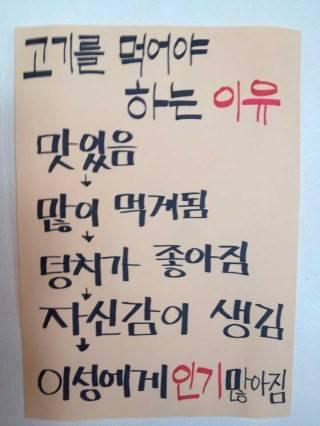 고기를 먹어야
하는 이유
맛있음
↓
많이 먹게됨
↓
덩치가 좋아짐
↓
자신감이 생김
↓
이성에게 인기 많아짐